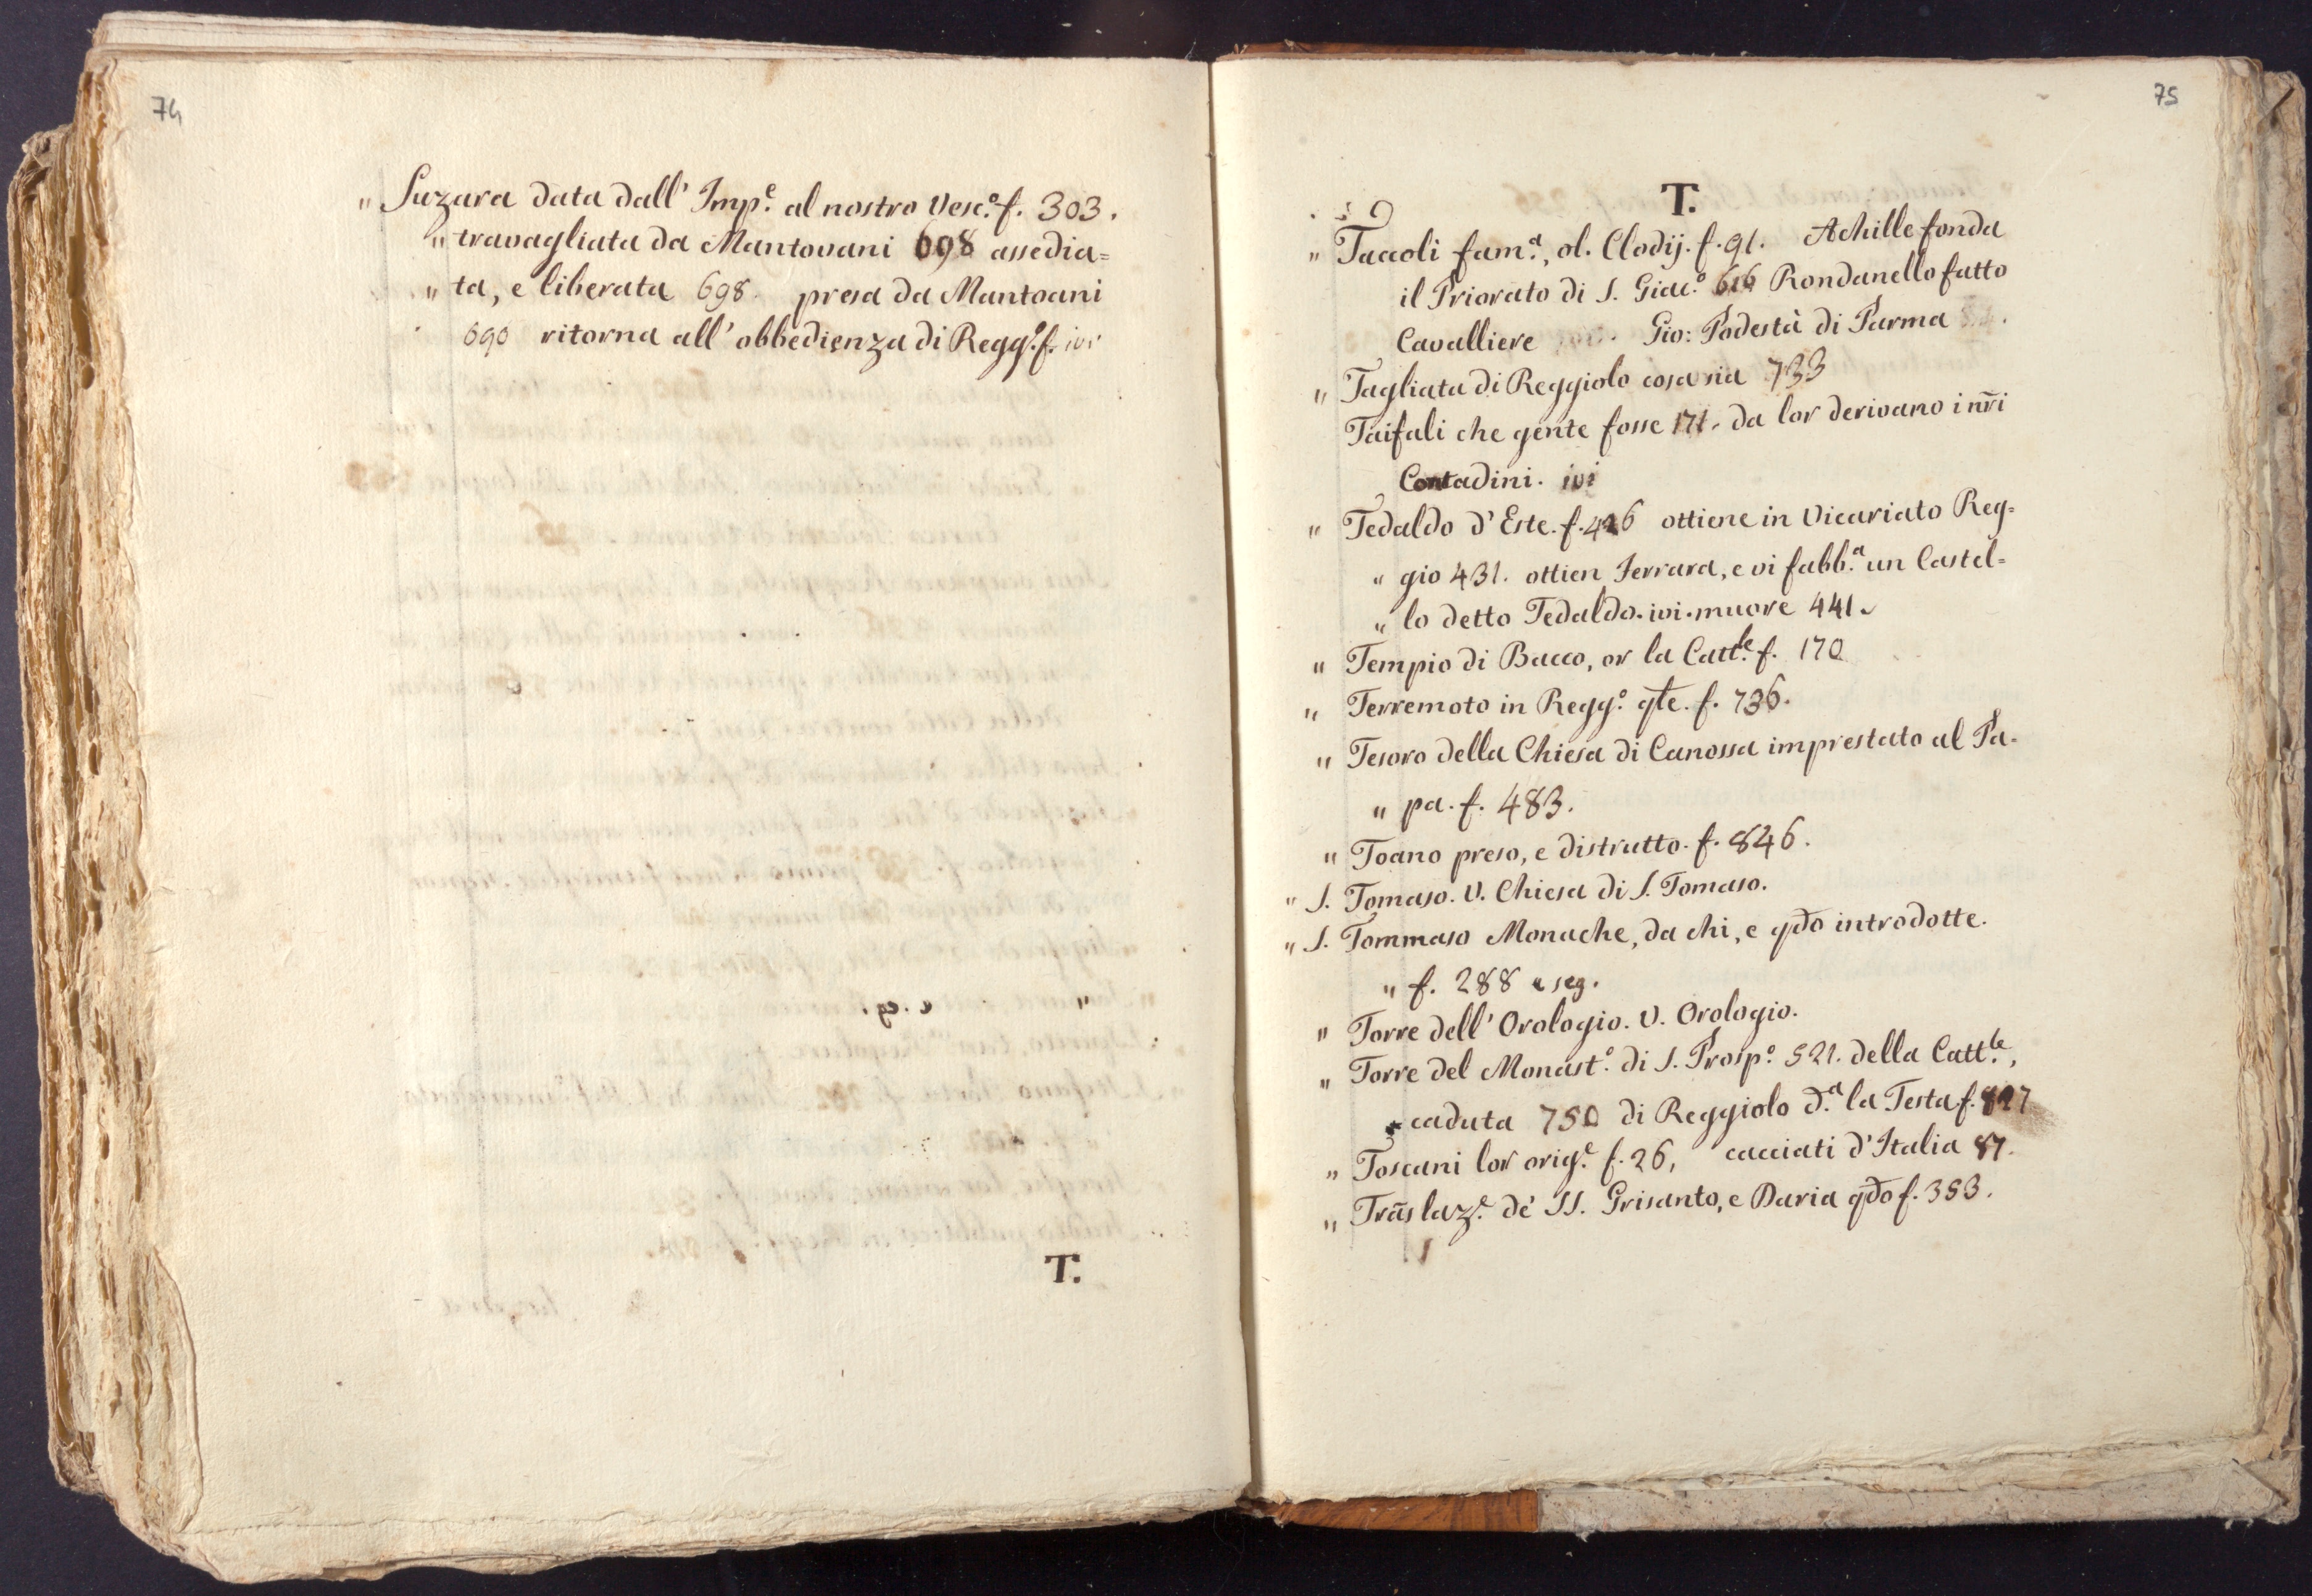 74
" Suzara data dall' Imp.e al nostro Vesc.o f. 303.
" travagliata da Mantovani 698 assedia=
" ta, e liberata 698. presa da Mantoani
690 ritorna all' obbedienza di Regg.o f. ivi
T.
75
T.
" Taccoli fam.a, ol. Clodij. f. 91. Achille fonda
il Priorato di S. Giac.o 616 Rondanello fatto
Cavalliere Gio: Podestà di Parma
" Tagliata di Reggiolo cosa sia 733
Taifali che gente fosse 171. da lor derivano i nr̄i
Contadini. ivi
" Tedaldo d' Este. f. 426 ottiene in Vicariato Reg=
" gio 431. ottien Ferrara, e vi fabb.a un Castel=
" lo detto Tedaldo. ivi. muore 441.
" Tempio di Bacco, or la Catt.le f. 170
" Terremoto in Regg.o qte. f. 736.
" Tesoro della Chiesa di Canossa imprestato al Pa=
" pa. f. 483.
" Toano preso, e distrutto. f. 846.
" S. Tomaso. V. Chiesa di S. Tomaso.
" S. Tommaso Monache, da chi, e qdo introdotte.
" f. 288 e seg.
" Torre dell' Orologio. V. Orologio.
" Torre del Monast.o di S. Prosp.o 521. della Catt.le,
caduta 750 di Reggiolo d.a la Testa f. 827
" Toscani lor orig.e f. 26, cacciati d' Italia 87.
" Trāslaz.e de' SS. Grisanto, e Daria qdo f. 353.